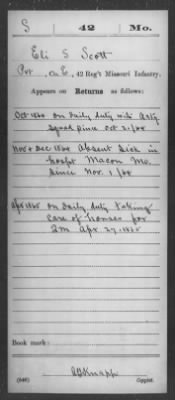 S 42 Mo.
Eli S Scott
Pvt., Co. E, 42 Reg't Missouri Infantry.
Appears on Returns as follows:
Oct 1864 on daily duty with
Squad since Oct 2/64
Nov & Dec 1864 Absent Sick in
hospt Macon Mo.
Since Nov. 1/64
Apr 1865 on daily duty taking
care of horses for
Q M Apr. 27. 1865
Book mark:
(546)
Copyist.